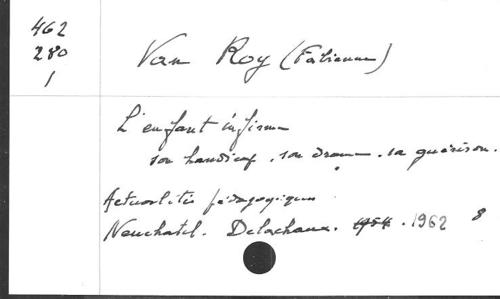 462
280
1
Van Roy (Fabienne)
L'enfant infirme
son handicap. son drame. sa guérison.
Actualités pédagogiques
Neuchatel. Delachaux. 1954. 1962 8